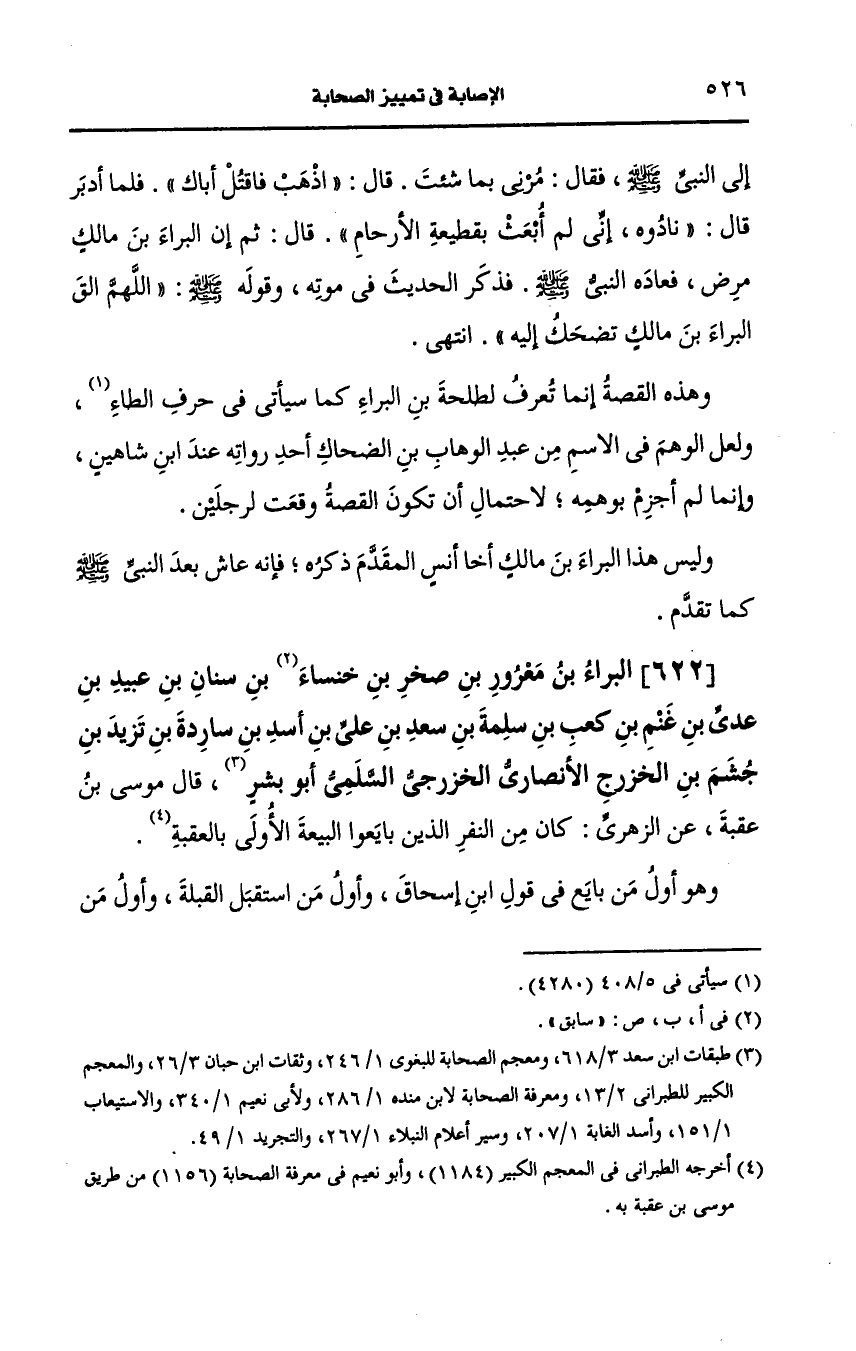 ٥٢٦
الإصابة فى تمييز الصحابة
إلى النبىِّ ﷺ ، فقال : مُرْنِى بما شئتَ . قال : « اذْهَبْ فاقتُلْ أباك » . فلما أدبَر
قال : « نادُوه ، إنِّى لم أُبْعَثْ بقطيعةِ الأرحامِ » . قال : ثم إن البراءَ بنَ مالكٍ
مرِض ، فعادَه النبىُّ ﷺ . فذكَر الحديثَ فى موتِه ، وقولَه ﷺ : « اللَّهمَّ القَ
البراءَ بنَ مالكٍ تضحَكُ إليه » . انتهى .
وهذه القصةُ إنما تُعرفُ لطلحةَ بنِ البراءِ كما سيأتى فى حرفِ الطاءِ(١) ،
ولعل الوهمَ فى الاسمِ مِن عبدِ الوهابِ بنِ الضحاكِ أحدِ رواتِه عندَ ابنِ شاهينٍ ،
وإنما لم أجزِمْ بوهمِه ؛ لاحتمالِ أن تكونَ القصةُ وقعَت لرجلَيْن .
وليس هذا البراءَ بنَ مالكٍ أخا أنسٍ المقَدَّمَ ذكرُه ؛ فإنه عاش بعدَ النبىِّ ﷺ
كما تقدَّم .
[٦٢٢] البراءُ بنُ مَعْرُورِ بنِ صخرِ بنِ خنساءَ(٢) بنِ سنانِ بنِ عبيدِ بنِ
عدىِّ بنِ غَنْمِ بنِ كعبِ بنِ سلِمةَ بنِ سعدِ بنِ علىِّ بنِ أسدِ بنِ سارِدةَ بنِ تَزيدَ بنِ
جُشَمَ بنِ الخزرجِ الأنصارىُّ الخزرجىُّ السَّلَمِىُّ أبو بشرٍ(٣) ، قال موسى بنُ
عقبةَ ، عن الزهرىِّ : كان مِن النفرِ الذين بايَعوا البيعةَ الأُولَى بالعقبةِ(٤) .
وهو أولُ مَن بايَع فى قولِ ابنِ إسحاقَ ، وأولُ مَن استقبَل القبلةَ ، وأولُ مَن
(١) سيأتى فى ٤٠٨/٥ (٤٢٨٠) .
(٢) فى أ ، ب ، ص : « سابق » .
(٣) طبقات ابن سعد ٦١٨/٣، ومعجم الصحابة للبغوى ١/ ٢٤٦، وثقات ابن حبان ٢٦/٣، والمعجم
الكبير للطبرانى ١٣/٢، ومعرفة الصحابة لابن منده ١/ ٢٨٦، ولأبى نعيم ٣٤٠/١، والاستيعاب
١٥١/١، وأسد الغابة ٢٠٧/١، وسير أعلام النبلاء ٢٦٧/١، والتجريد ١/ ٤٩.
(٤) أخرجه الطبرانى فى المعجم الكبير (١١٨٤) ، وأبو نعيم فى معرفة الصحابة (١١٥٦) من طريق
موسى بن عقبة به .